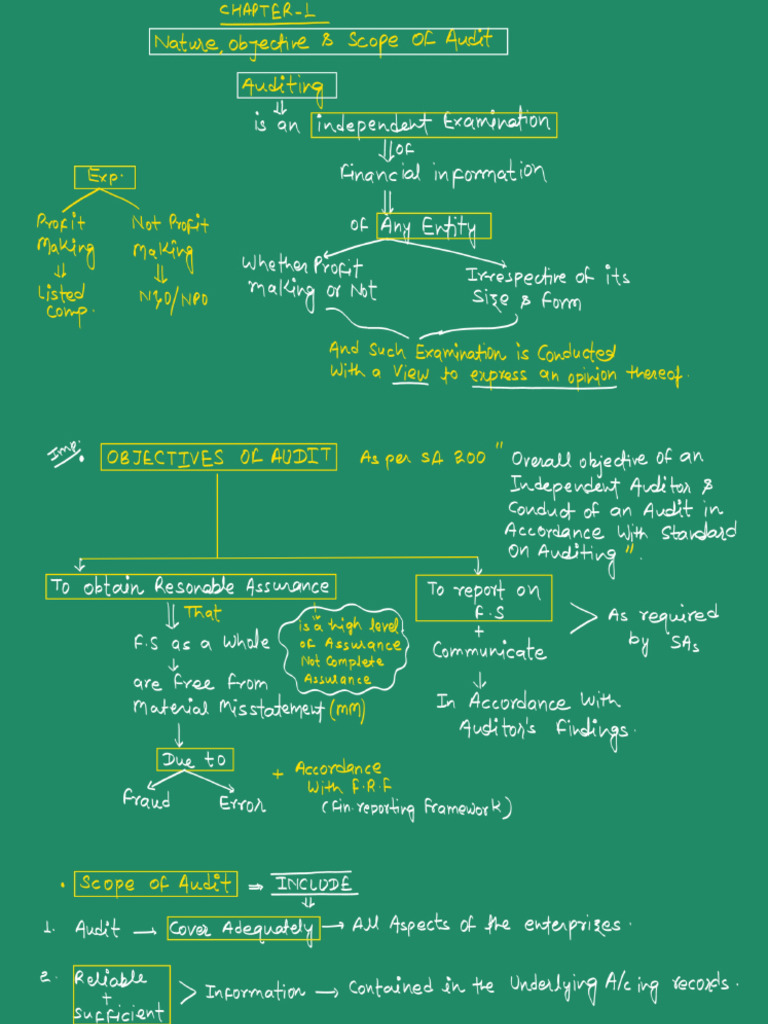 CHAPTER-1
Nature, objective & Scope Of Audit
Auditing
is an independent Examination
OF
financial information
of Any Entity
Whether Profit
making or Not
Irrespective of its
Size & form
Exp.
Profit
Making
Listed
Comp.
Not Profit
Making
NGO/NPO
And Such Examination is Conducted
With a View to express an opinion thereof.
Imp.
OBJECTIVES OF AUDIT
As per SA 200 "Overall objective of an
Independent Auditor &
Conduct of an Audit in
Accordance With Standard
On Auditing".
To obtain Resonable Assurance
That
F.S as a Whole
are free from
Material Misstatement (MM)
is a high level
of Assurance
Not Complete
Assurance
Due to
Fraud
Error
+ Accordance
With F.R.F
(fin.reporting framework)
To report on
F.S
+
Communicate
In Accordance With
Auditor's findings.
As required
by SAs
• Scope of Audit ⇒ INCLUDE
1. Audit → Cover Adequately → All Aspects of the enterprizes.
2. Reliable
+
Sufficient
> Information → Contained in the Underlying A/cing records.